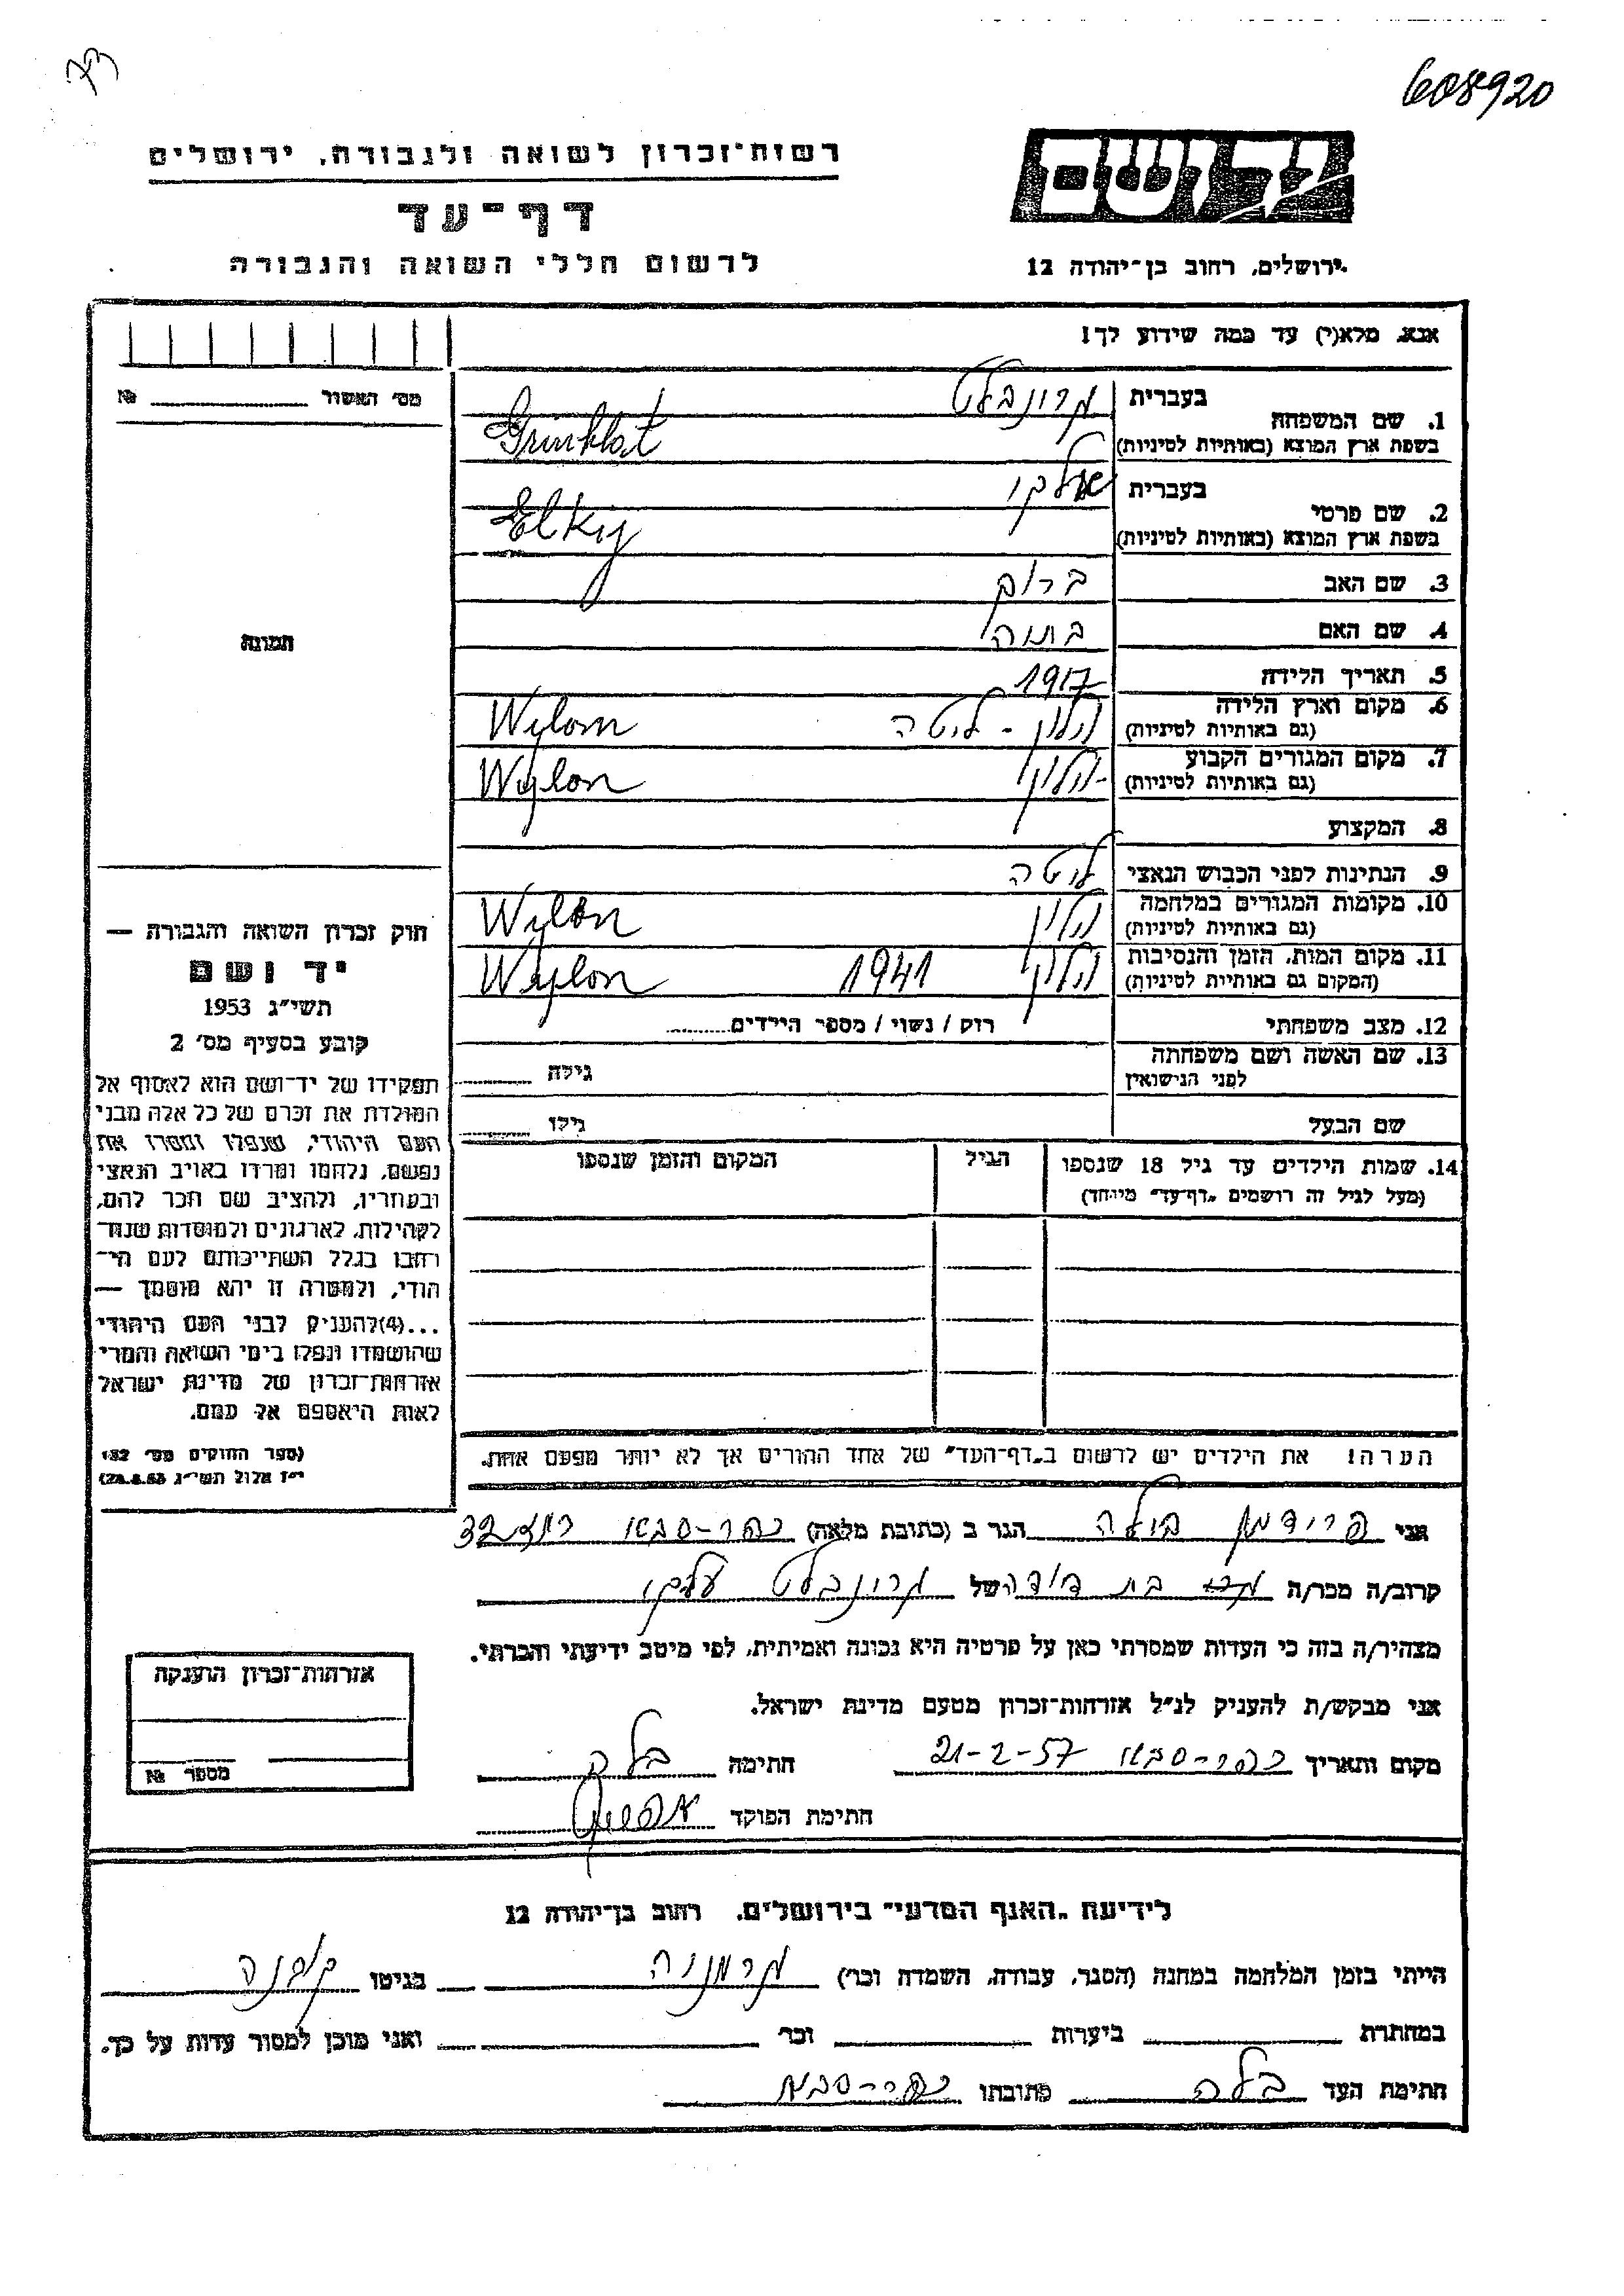 608920
רשות-זכרון לשואה ולגבורה, ירושלים
יד ושם
דף-עד
לרשום חללי השואה והגבורה
ירושלים, רחוב בן-יהודה 12
אנא, מלא(י) עד כמה שידוע לך!
מס׳ האשור №
1. שם המשפחה בעברית גרונבלט
בשפת ארץ המוצא (באותיות לטיניות) Grünblat
2. שם פרטי בעברית
בשפת ארץ המוצא (באותיות לטיניות) Elkij
3. שם האב
4. שם האם
תמונה
5. תאריך הלידה 1917
6. מקום וארץ הלידה (גם באותיות לטיניות) וילון - ליטה Wylon
7. מקום המגורים הקבוע (גם באותיות לטיניות) וילון Wylon
8. המקצוע
9. הנתינות לפני הכבוש הנאצי ליטה
10. מקומות המגורים במלחמה (גם באותיות לטיניות) וילון Wylon
11. מקום המות, הזמן והנסיבות (המקום גם באותיות לטיניות) וילון 1941 Wylon
12. מצב משפחתי רווק / נשוי / מספר הילדים
13. שם האשה ושם משפחתה לפני הנישואין גילה
שם הבעל גילו
14. שמות הילדים עד גיל 18 שנספו הגיל המקום והזמן שנספו
(מעל לגיל זה רושמים "דף-עד" מיוחד)
הערה! את הילדים יש לרשום ב"דף-העד" של אחד ההורים אך לא יותר מפעם אחת.
חוק זכרון השואה והגבורה —
יד ושם
תשי"ג 1953
קובע בסעיף מס׳ 2
תפקידו של יד-ושם הוא לאסוף אל
המולדת את זכרם של כל אלה מבני
העם היהודי, שנפלו ומסרו את
נפשם, נלחמו ומרדו באויב הנאצי
ובעוזריו, ולהציב שם וזכר להם,
לקהילות, לארגונים ולמוסדות שנח-
רבו בגלל השתייכותם לעם הי-
הודי, ולמטרה זו יהא מוסמך —
...(4)להעניק לבני העם היהודי
שהושמדו ונפלו בימי השואה והמרי
אזרחות-זכרון של מדינת ישראל
לאות היאספם אל עמם.
(ספר החוקים מס׳ 132,
י"ז אלול תשי"ג 28.8.53)
אני פרידמן בילה הגר ב (כתובת מלאה) כפר-סבא 32
קרוב/ה מכר/ה בת דודה של גרונבלט
מצהיר/ה בזה כי העדות שמסרתי כאן על פרטיה היא נכונה ואמיתית, לפי מיטב ידיעתי והכרתי.
אני מבקש/ת להעניק לנ"ל אזרחות-זכרון מטעם מדינת ישראל.
מקום ותאריך כפר-סבא 21-2-57 חתימה
חתימת הפוקד
אזרחות-זכרון הוענקה
מספר №
לידיעת "האגף המדעי" בירושלים, רחוב בן-יהודה 12
הייתי בזמן המלחמה במחנה (הסגר, עבודה, השמדה וכו׳) גרמניה בגיטו קובנה
במחתרת ביערות וכו׳ ואני מוכן למסור עדות על כך.
חתימת העד בלה כתובתו כפר-סבא